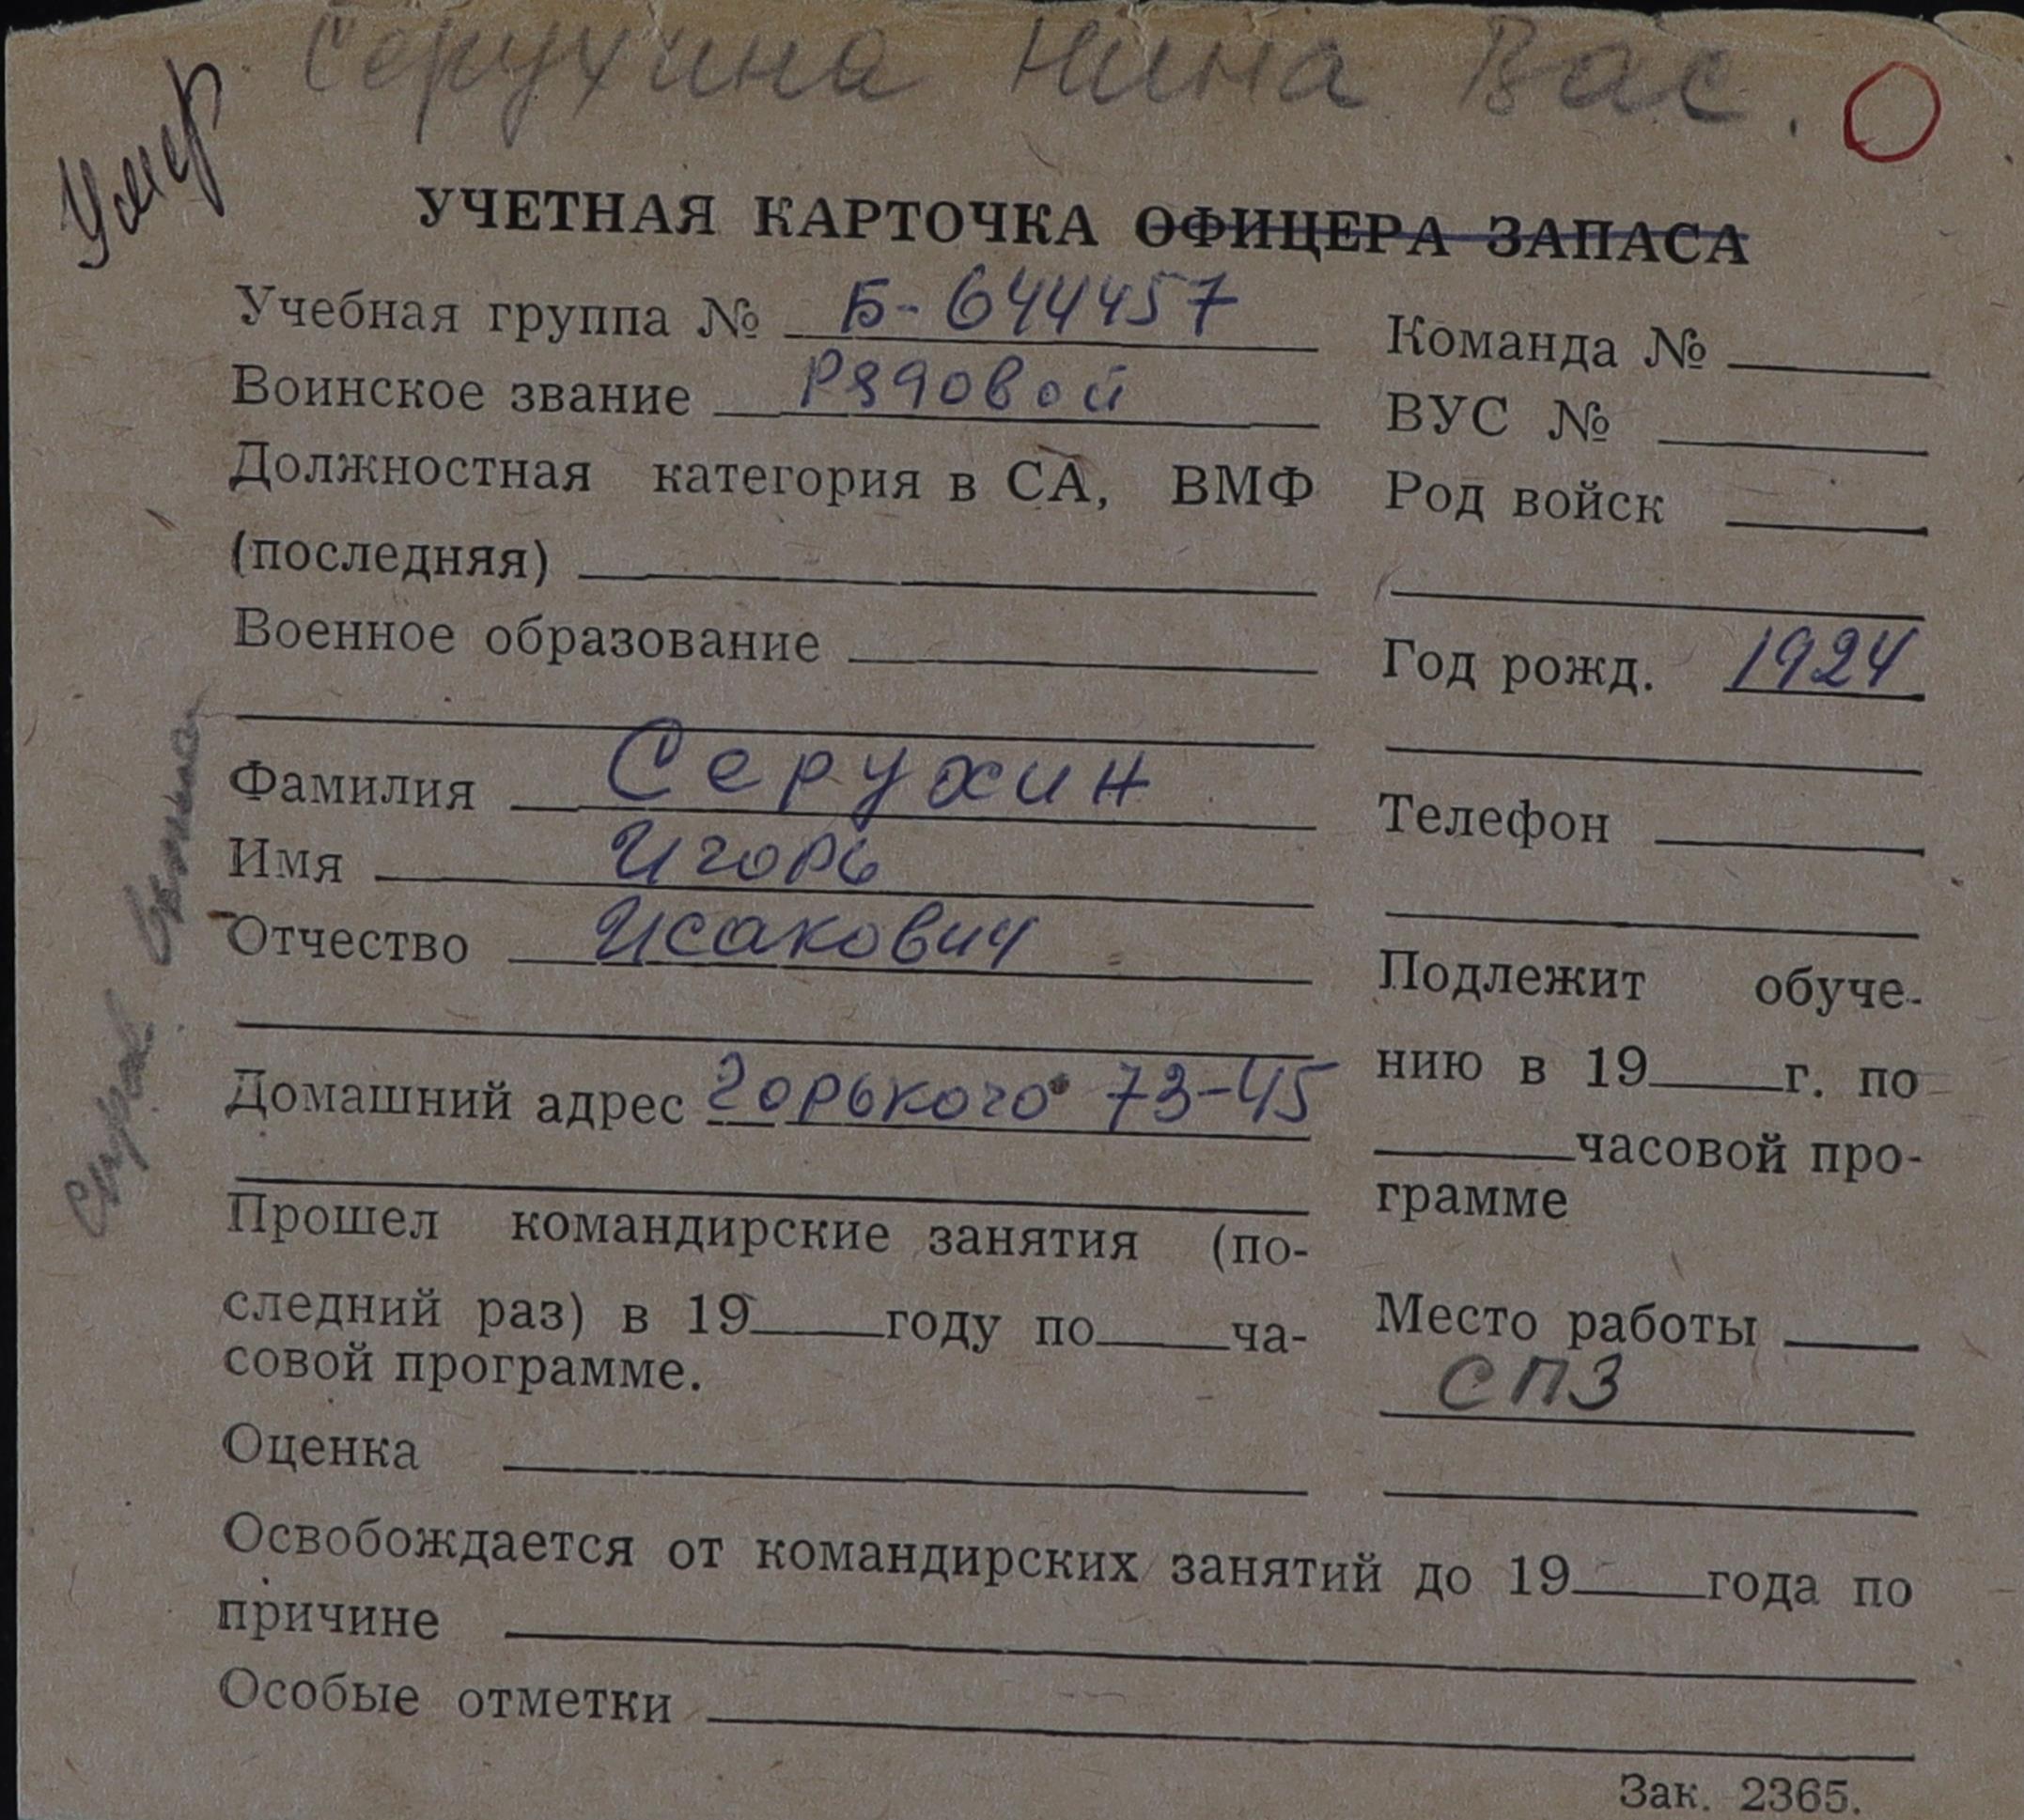 Серухина Нина Вас.
Умер
УЧЕТНАЯ КАРТОЧКА ОФИЦЕРА ЗАПАСА
Учебная группа № Б-644457
Воинское звание Рядовой
Должностная категория в СА, ВМФ
(последняя)
Военное образование
Фамилия Серухин
Имя Игорь
Отчество Исакович
Домашний адрес Горького 73-45
Прошел командирские занятия (по-
следний раз) в 19 году по ча-
совой программе.
Оценка
Команда №
ВУС №
Род войск
Год рожд. 1924
Телефон
Подлежит обуче-
нию в 19 г. по
часовой про-
грамме
Место работы
СПЗ
Освобождается от командирских занятий до 19 года по
причине
Особые отметки
Зак. 2365.